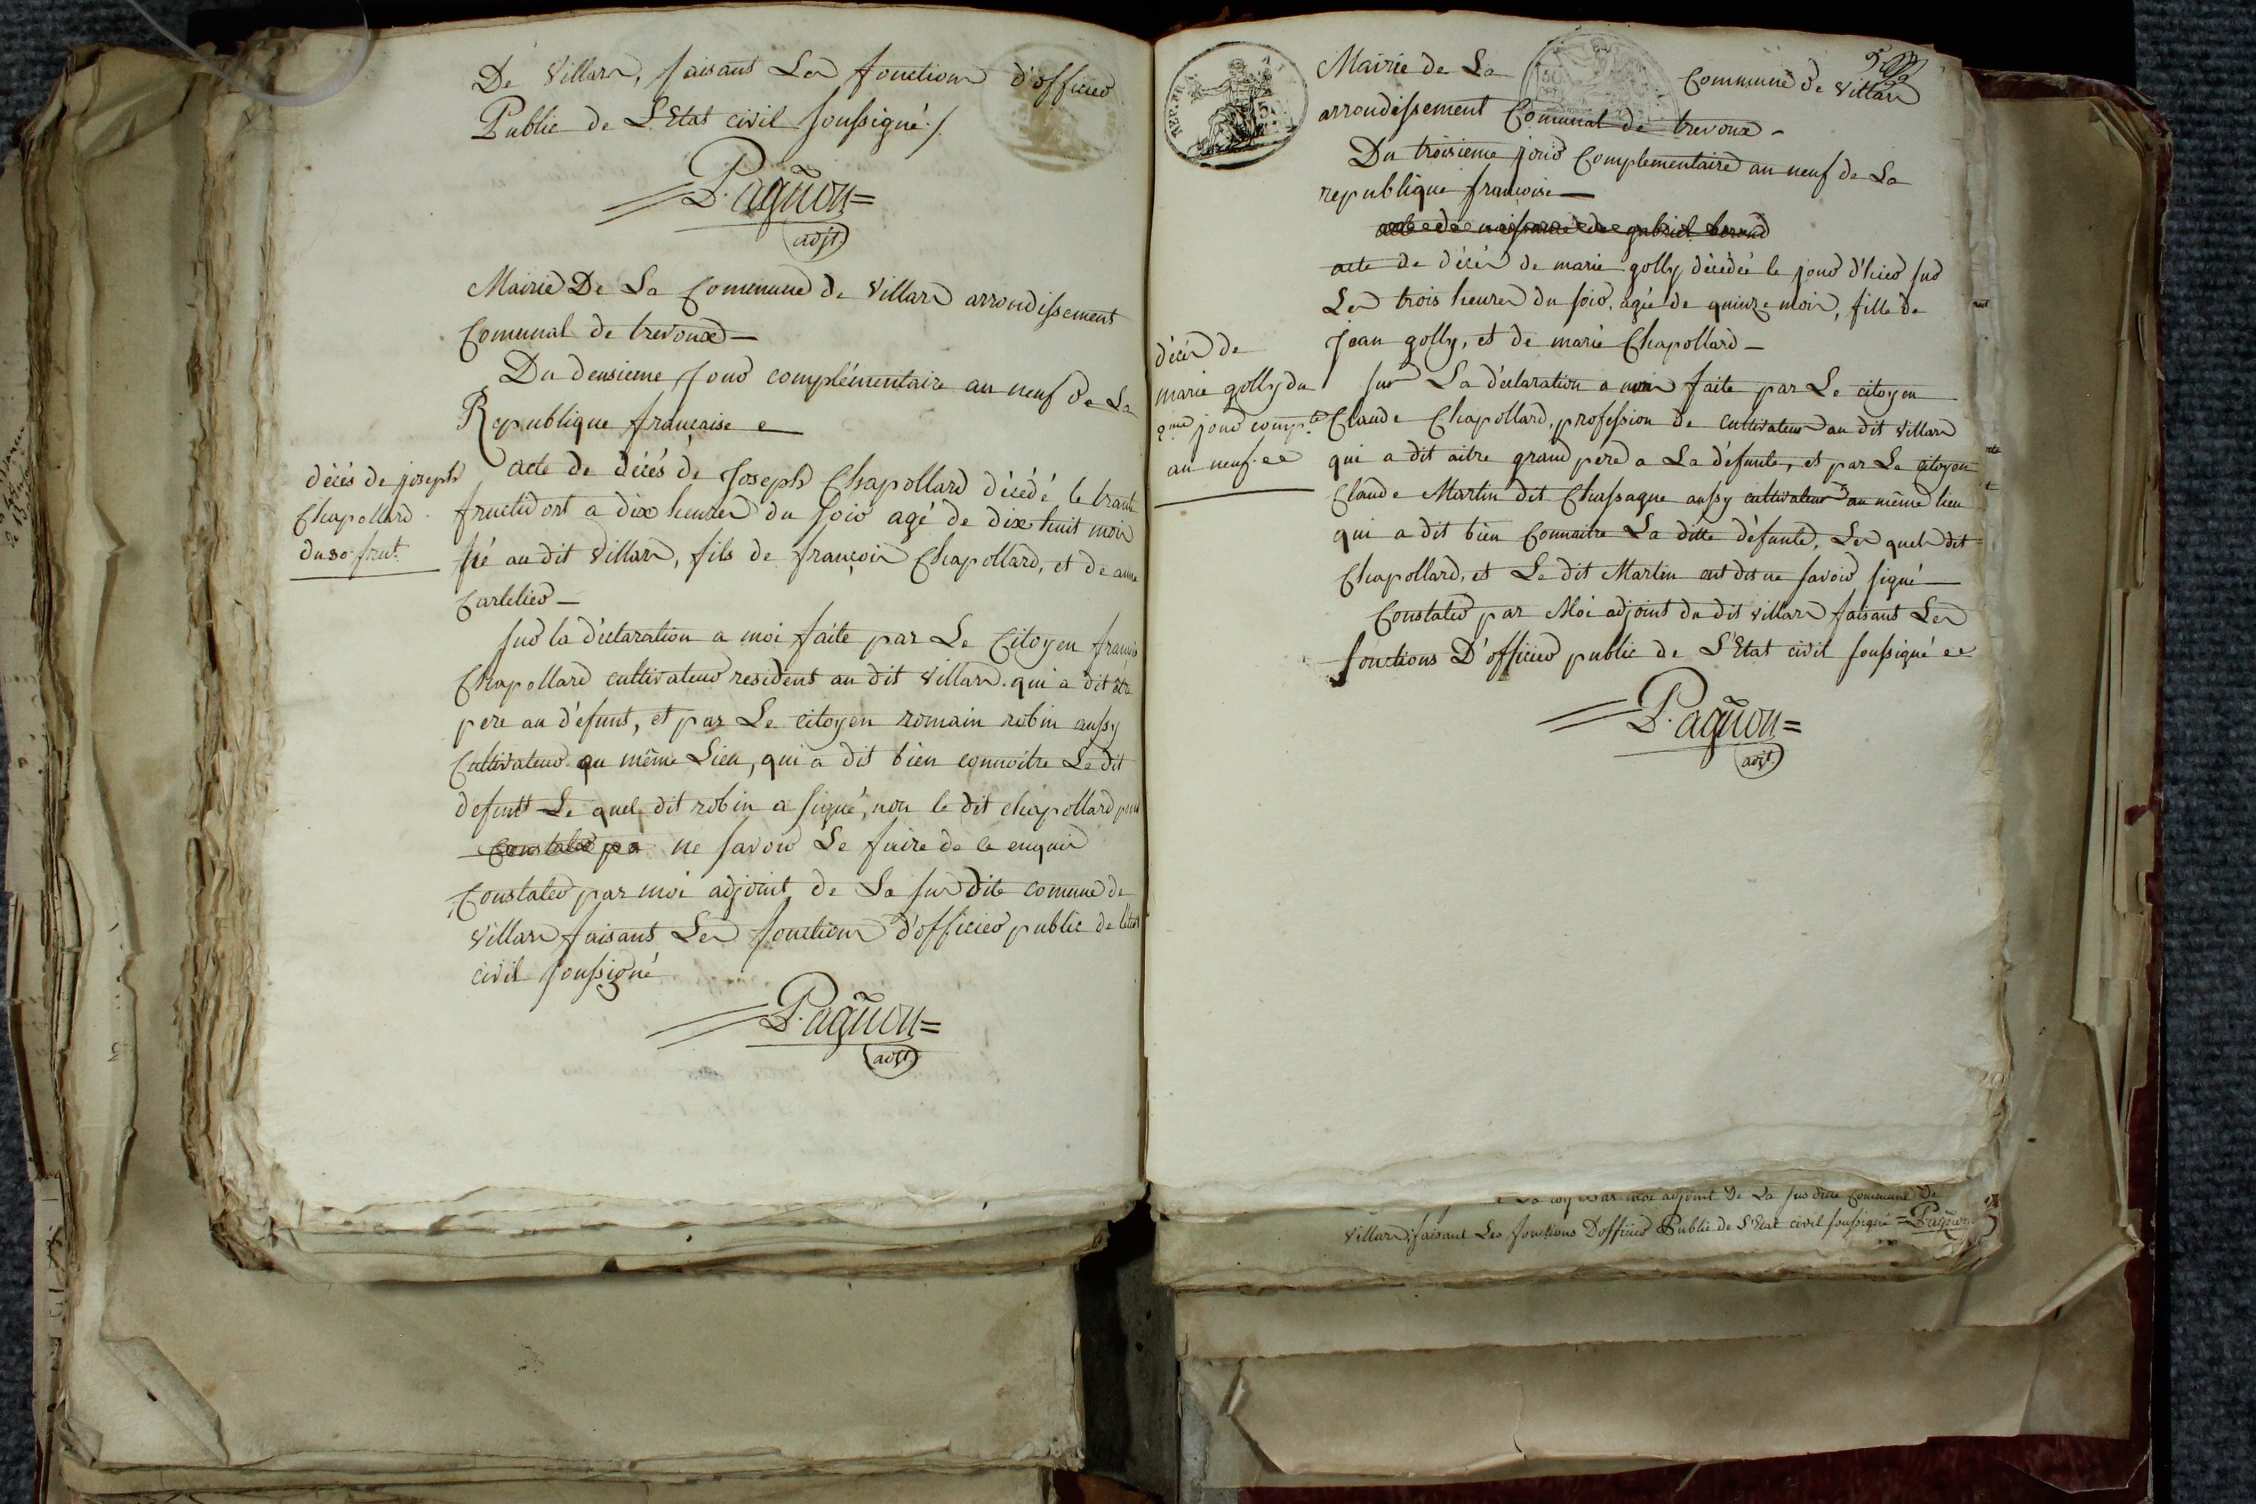 De Villars, faisant Les fonctions d'officier
Public de L'Etat civil soussigné ./.
= Pagñon =
adjt
Mairie De La Commune de Villars arrondissement
Comunal de trevoux —
Du deusieme jour complémentaire an neuf de La
Republique française
décés de joseph
Chapollard
du 30 fruct.
acte de décés de Joseph Chapollard décédé le trante
fructidort a dix heures du soir agé de dix huit mois
né au dit Villars, fils de françois Chapollard, et de anne
Carlelier —
sur la déclaration a moi faite par Le Citoyen francois
Chapollard cultivateur resident au dit Villars. qui a dit être
pere au défunt, et par Le citoyen romain robin aussy
Cultivateur au même Lieu, qui a dit bien connoitre Le dit
defunt Le quel dit robin a signé, non le dit chapollard pour
Constaté pa ne savoir Le faire de ce enquis
Constaté par moi adjoint de La sus dite comune de
Villars faisant Les fonctions d'officier public de l'etat
civil soussigné
= Pagñon =
adjt
REP. FRA.
Mairie de La Commune de Villars
arrondissement Comunal de trevoux -
Du troisieme jour Complementaire an neuf de La
republique françoise —
acte de naissance de gabriel
acte de décés de marie golly décédée le jour d'hier sur
Les trois heures du soir, agée de quinze mois, fille de
Jean golly, et de marie Chapollard —
décés de
marie golly du
2me jour compre
an neuf
sur La déclaration a moi faite par Le citoyen
Claude Chapollard, profession de cultivateur au dit Villars
qui a dit aitre grand pere a La défunte, et par Le citoyen
Claude Martin dit Chassagne aussy cultivateur au même lieu
qui a dit bien Connaitre La ditte défunte, Les quels dit
Chapollard, et Le dit Martin ont dit ne savoir signé —
Constaté par Moi adjoint du dit Villars faisant Les
fonctions D'officier public de L'Etat civil soussigné
= Pagñon =
adjt.
par moi adjoint de La sus dite Commune de
Villars, faisant Les fonctions D'officier Public de L'Etat civil soussigné = Pagñon